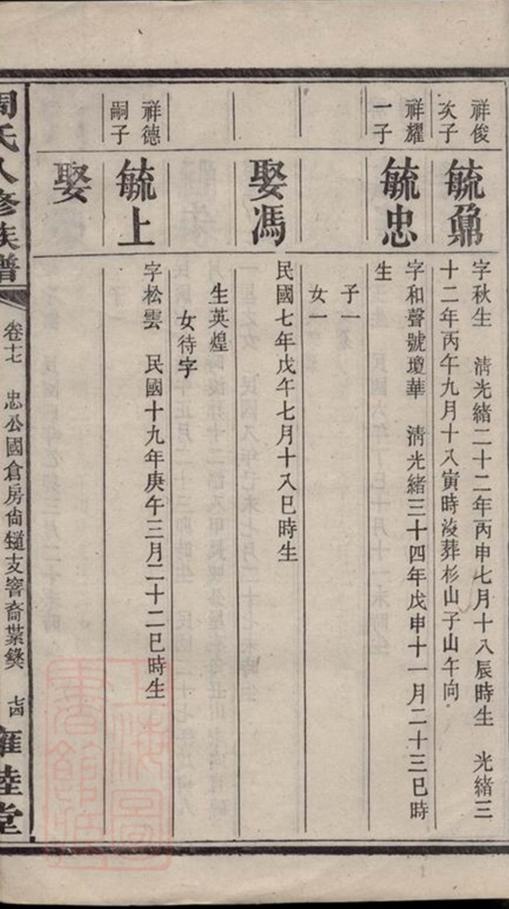 祥俊
次子
毓鼐
字秋生　清光緒二十二年丙申七月十八辰時生　光緒三
十二年丙午九月十八寅時沒葬杉山子山午向
祥耀
一子
毓忠
字和聲號瓊華　清光緒三十四年戊申十一月二十三巳時
生
子一
女一
娶馮
民國七年戊午七月十八巳時生
生英煌
女待字
祥德
嗣子
毓上
字松雲　民國十九年庚午三月二十二巳時生
娶
周氏八修族譜
卷十七　忠公國倉房尙
支
裔
七十四
雍睦堂